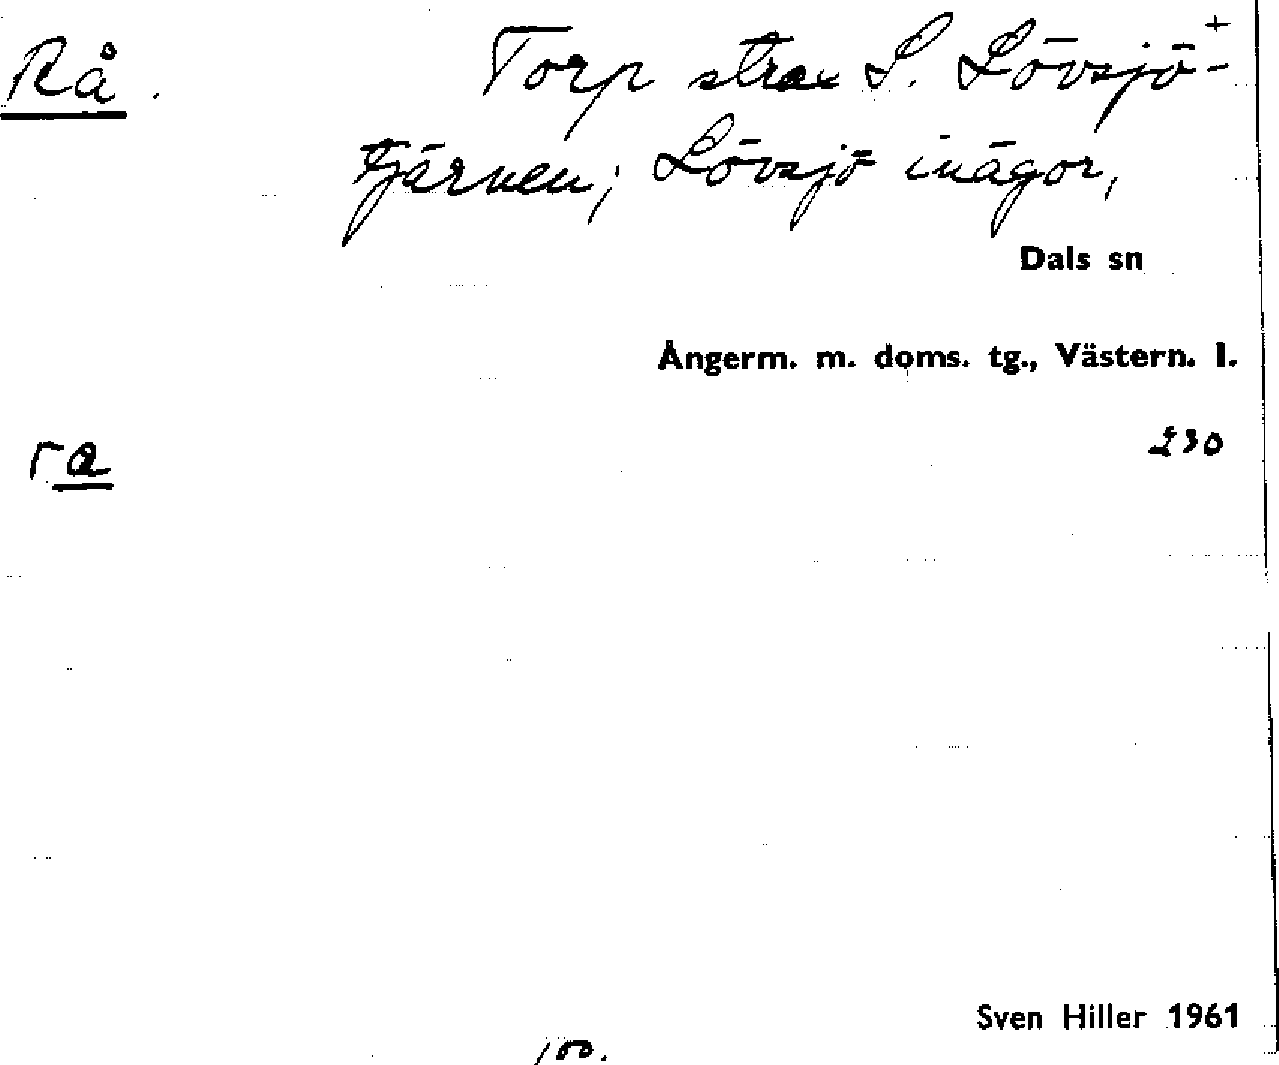 Rå. Torp strax S. Lövsjö- +
tjärnen; Lövsjö inägor,
Dals sn
Ångerm. m. doms. tg., Västern. l.
ra 230
Sven Hiller 1961
100.